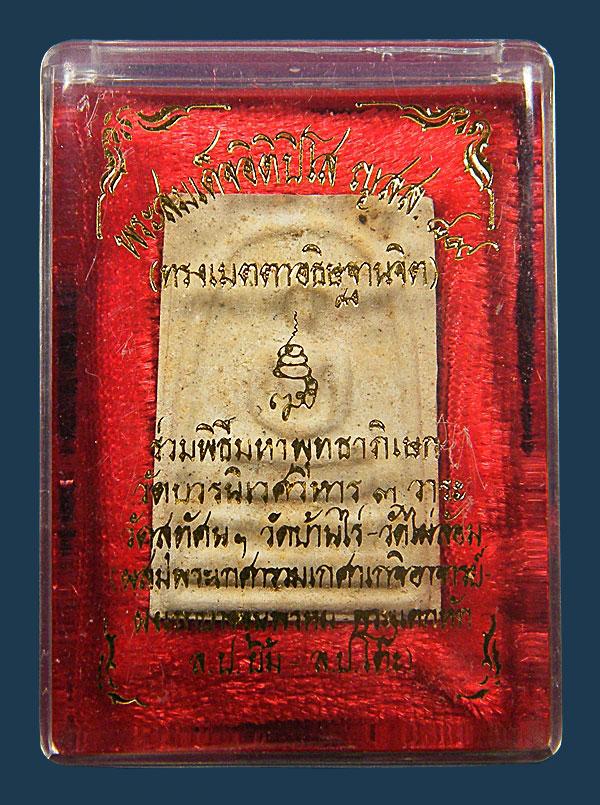 พระสมเด็จอิติปิโส ญสส. ๘๙
(ทรงเมตตาอธิษฐานจิต)
ร่วมพิธีมหาพุทธาภิเษก
วัดบวรนิเวศวิหาร ๓ วาระ
วัดสุทัศน ฯ วัดบ้านไร่-วัดไผ่ล้อม
(ผสมพระเกศารวมเกศาเกจิอาจารย์-
ล.ป.ยิ้ม - ล.ป.โต๊ะ)